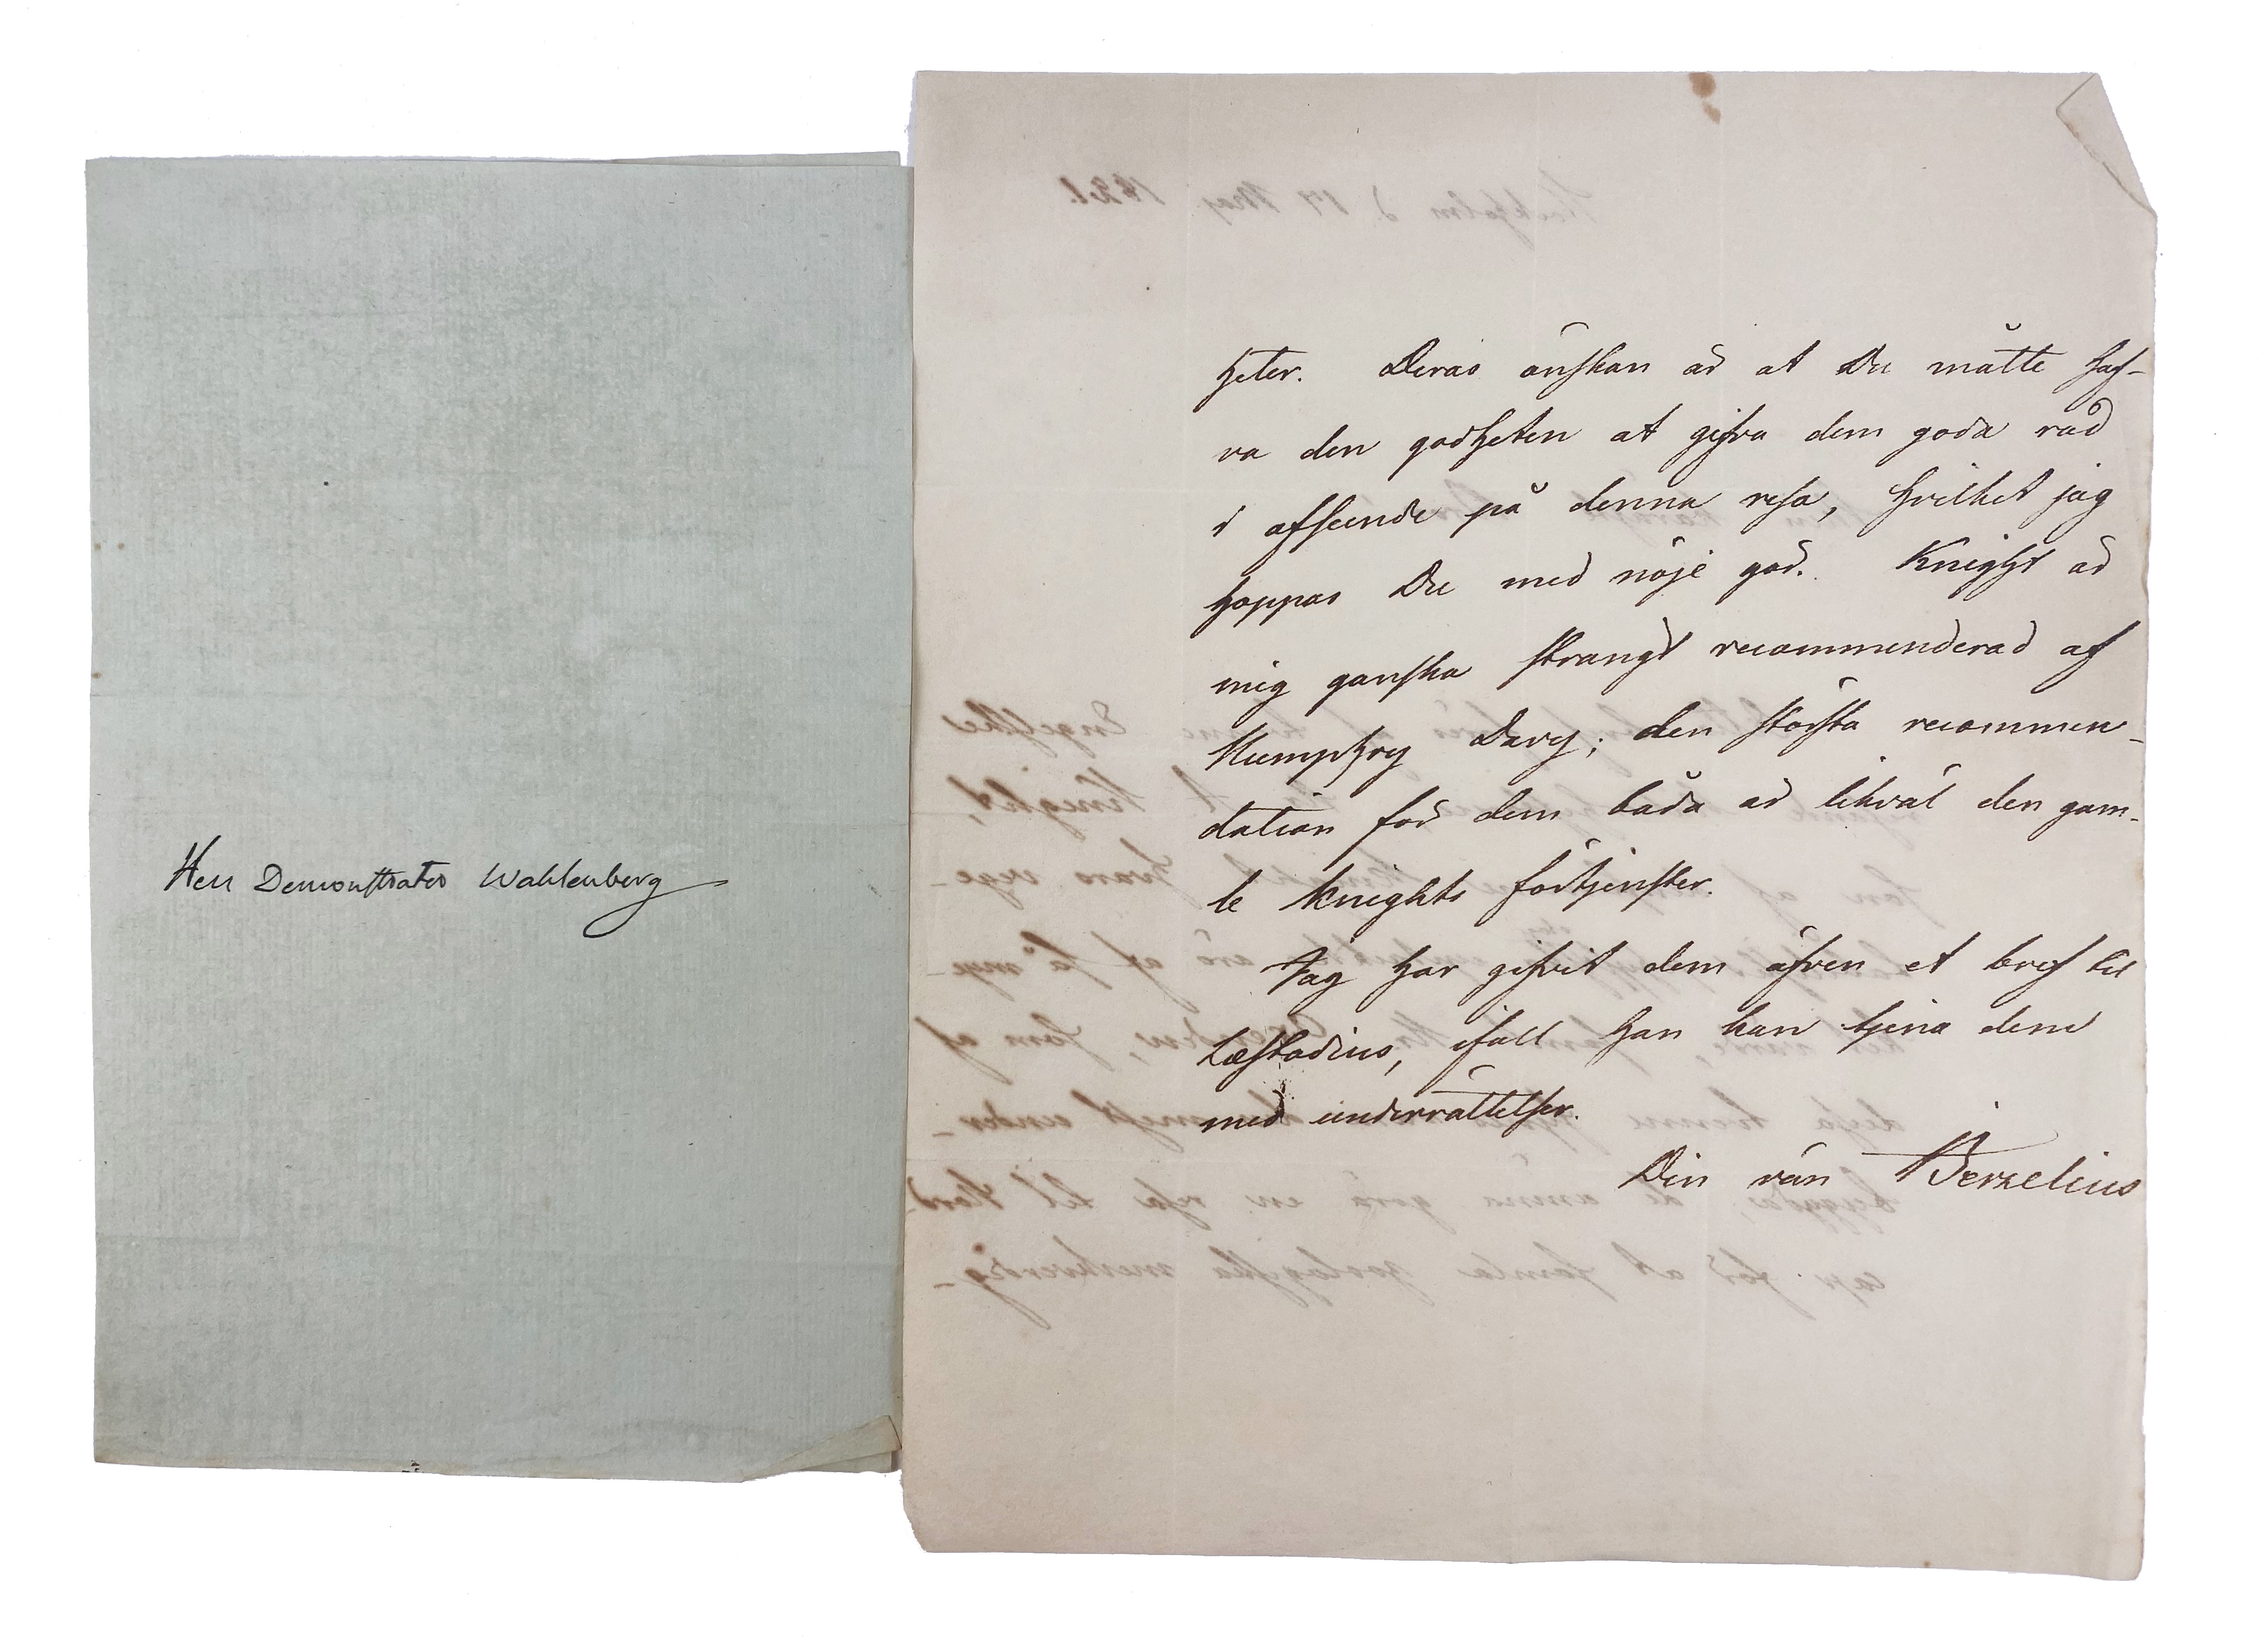 Herr Demonstrator Wahlenberg
heter. Deras önskan är at Du måtte haf-
va den godheten at gifva dem goda råd
i afseende på denna resa, hvilket jag
hoppas Du med nöje gör. Knight är
mig ganska strängt recommenderad af
Humphry Davy; den största recommen-
dation för dem båda är likväl den gam-
le Knights förtjenster.
Jag har gifvit dem äfven et bref til
Læstadius, ifall han kan tjena dem
med underrättelser.
Din vän Berzelius